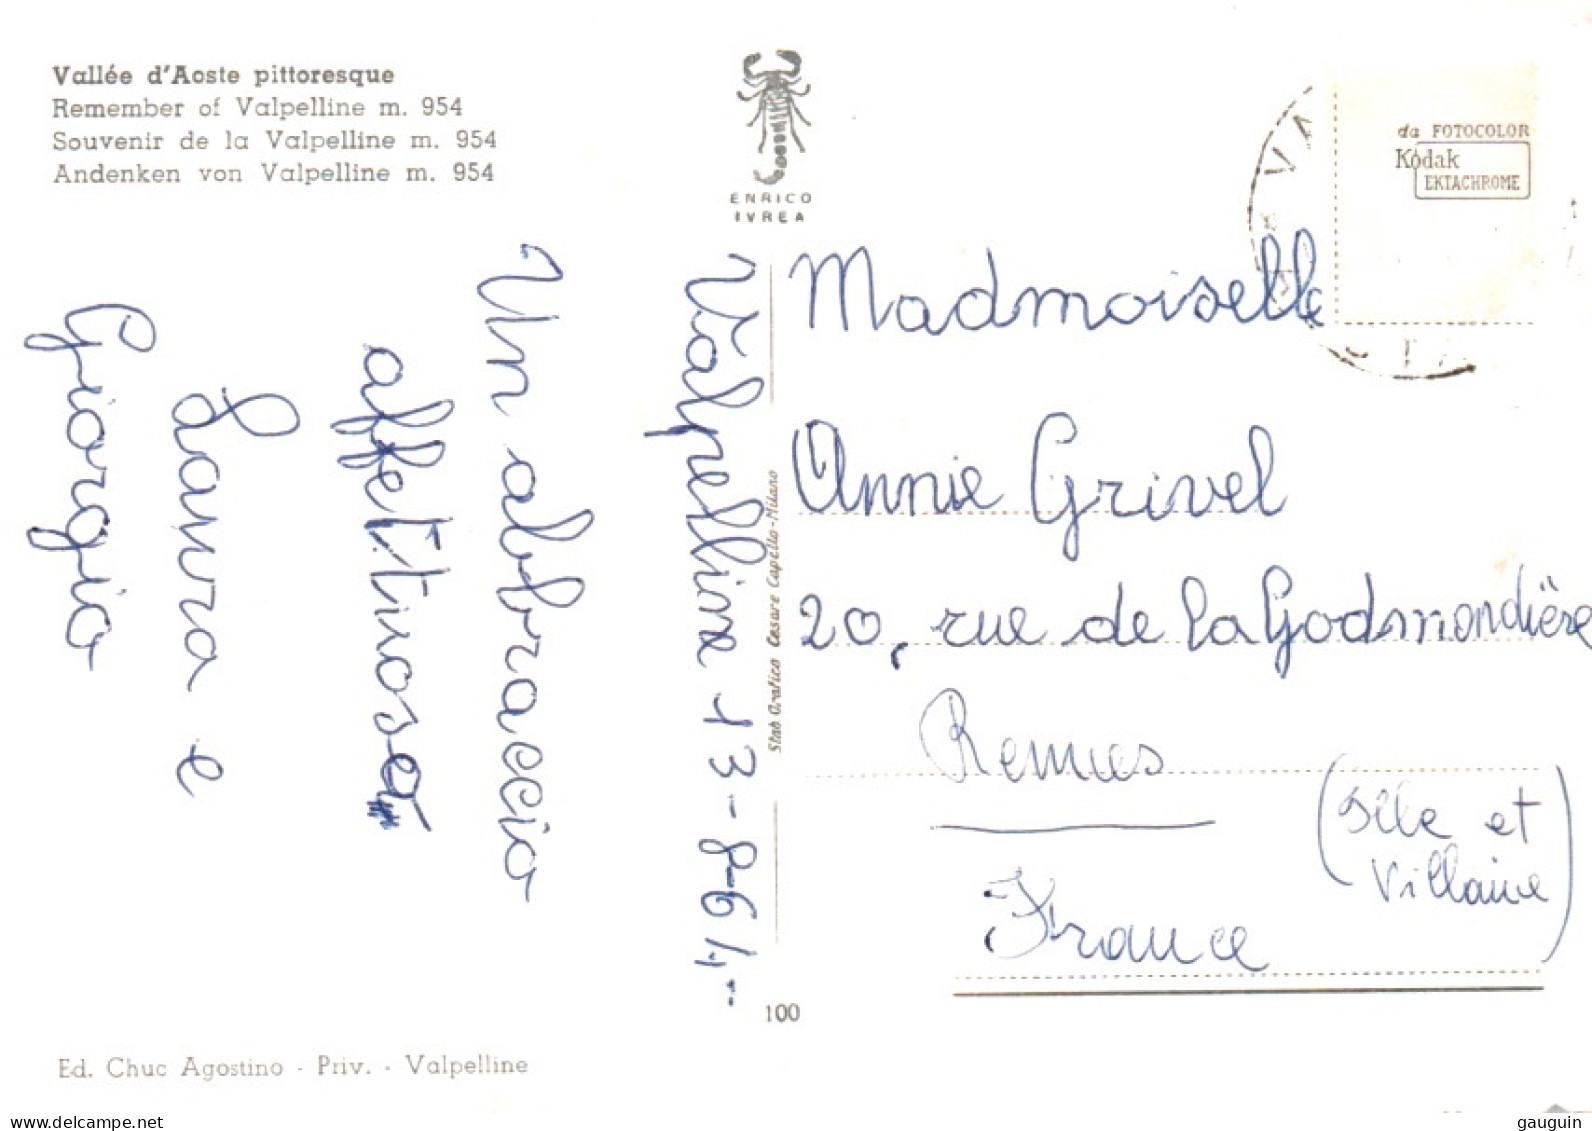 Vallée d'Aoste pittoresque
Remember of Valpelline m. 954
Souvenir de la Valpelline m. 954
Andenken von Valpelline m. 954
ENRICO
IVREA
da FOTOCOLOR
Kodak
EKTACHROME
Valpelline 13-8-64,
Un abbraccio
affettuoso
Laura e
Giorgio
Madmoiselle
Annie Grivel
20, rue de la Godmondière
Rennes
(Ille et
Villaine)
France
Stab Grafico Cesare Capello-Milano
100
Ed. Chuc Agostino - Priv. - Valpelline
www.delcampe.net
gauguin